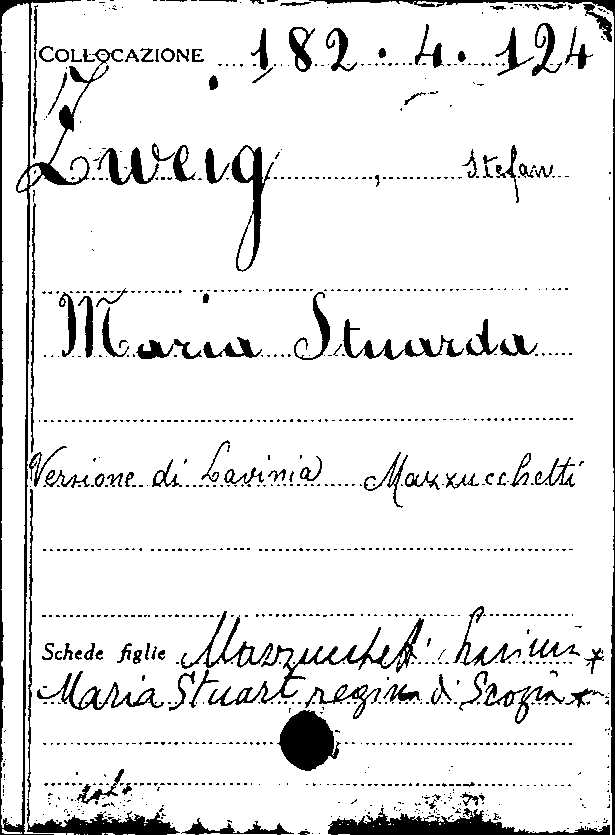 COLLOCAZIONE 182.4.124
Zweig, Stefan
Maria Stuarda
Versione di Lavinia Mazzucchetti
Schede figlie Mazzucchetti Lavinia *
Maria Stuart regina di Scozia *